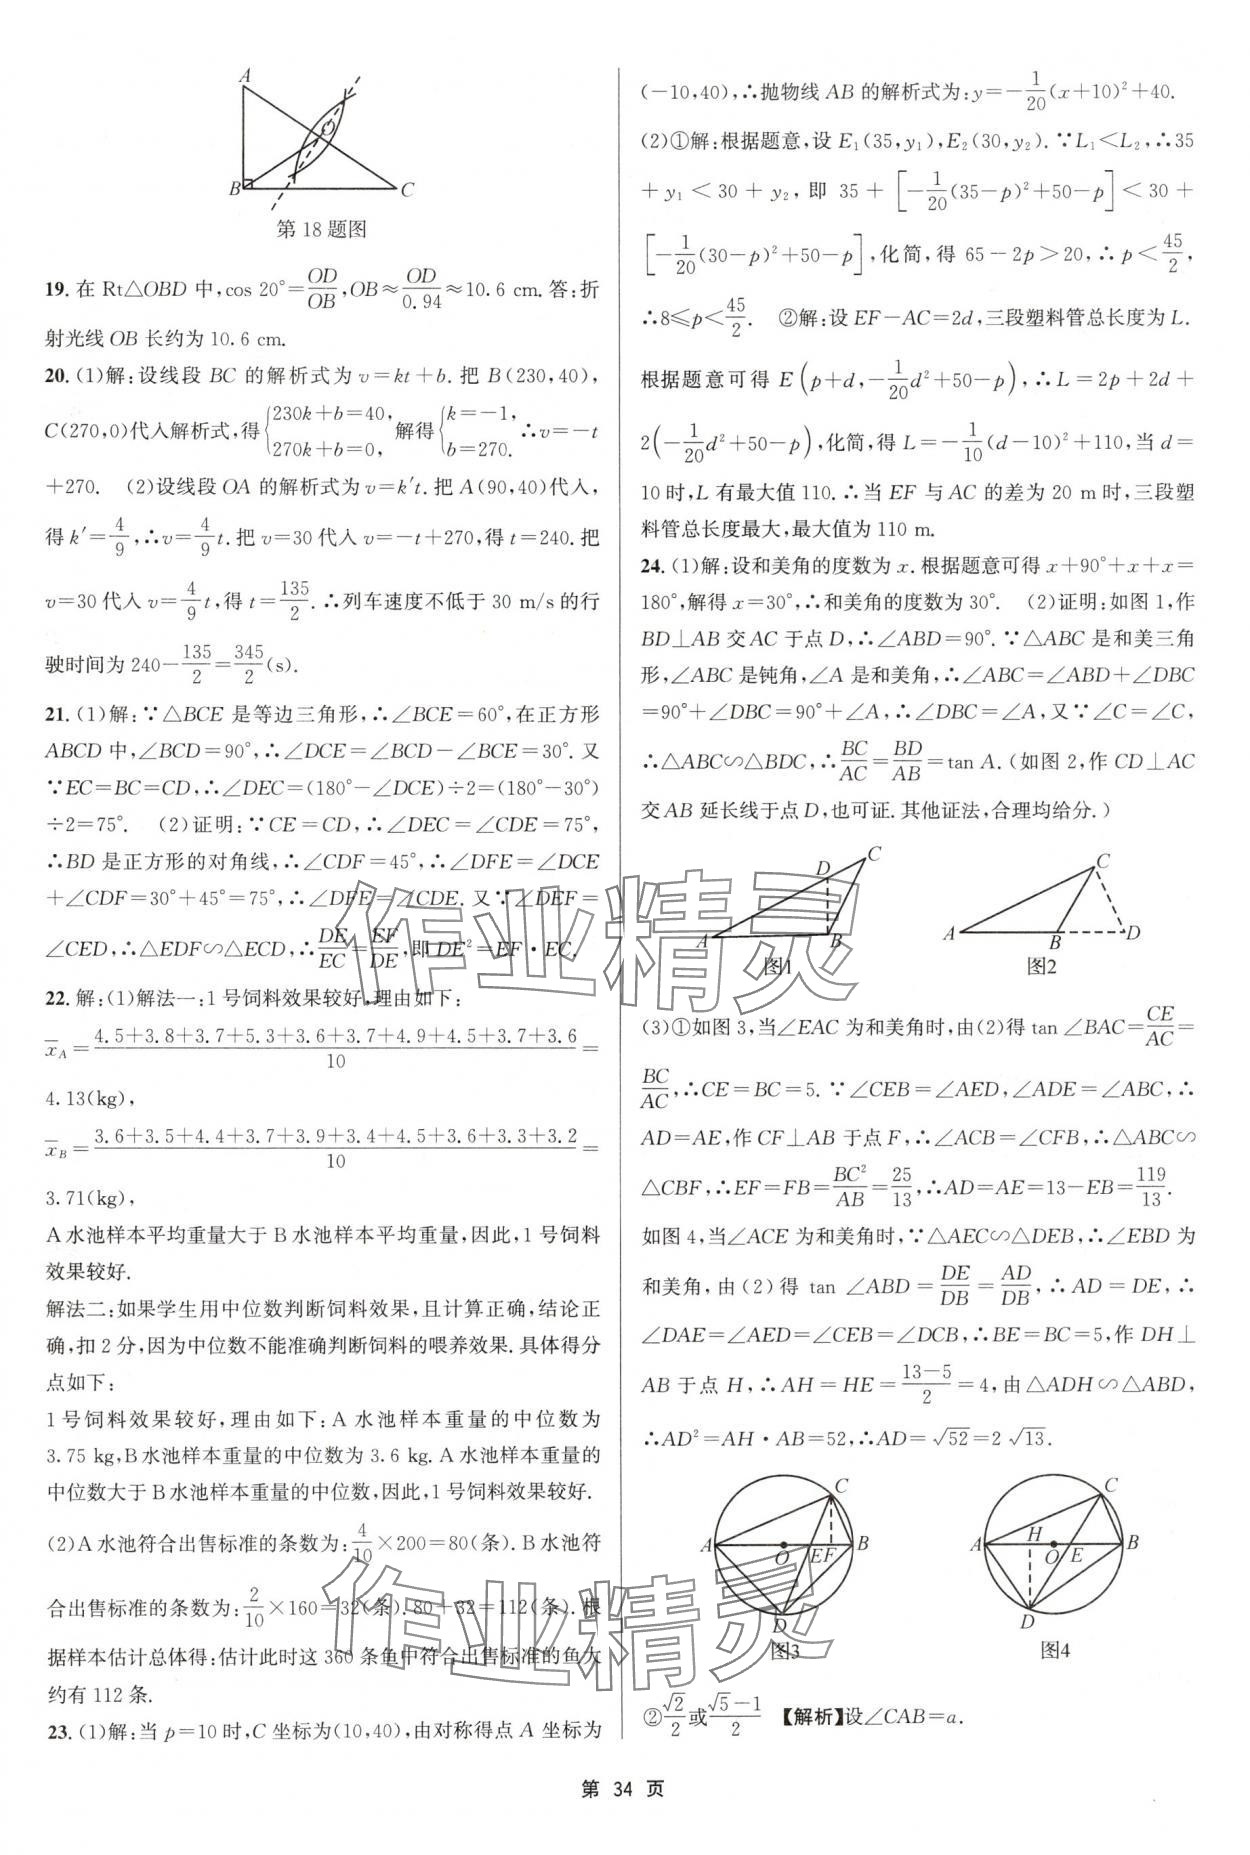 A
B
C
第18题图
19. 在 Rt△OBD 中, cos 20°=OD/OB, OB≈OD/0.94≈10.6 cm. 答:折
射光线 OB 长约为 10.6 cm.
20. (1)解:设线段 BC 的解析式为 v=kt+b. 把 B(230,40),
C(270,0)代入解析式,得{230k+b=40, 270k+b=0, 解得{k=-1, b=270. ∴v=-t
+270. (2)设线段 OA 的解析式为 v=k't. 把 A(90,40)代入,
得 k'=4/9,∴v=4/9t. 把 v=30 代入 v=-t+270,得 t=240. 把
v=30 代入 v=4/9t,得 t=135/2. ∴列车速度不低于 30 m/s 的行
驶时间为 240-135/2=345/2(s).
21. (1)解:∵△BCE 是等边三角形,∴∠BCE=60°,在正方形
ABCD 中,∠BCD=90°,∴∠DCE=∠BCD-∠BCE=30°. 又
∵EC=BC=CD,∴∠DEC=(180°-∠DCE)÷2=(180°-30°)
÷2=75°. (2)证明:∵CE=CD,∴∠DEC=∠CDE=75°,
∴BD 是正方形的对角线,∴∠CDF=45°,∴∠DFE=∠DCE
+∠CDF=30°+45°=75°,∴∠DFE=∠CDE. 又∵∠DEF=
∠CED,∴△EDF∽△ECD,∴DE/EC=EF/DE,即 DE²=EF·EC.
22. 解:(1)解法一:1号饲料效果较好,理由如下:
x̄A=(4.5+3.8+3.7+5.3+3.6+3.7+4.9+4.5+3.7+3.6)/10=
4.13(kg),
x̄B=(3.6+3.5+4.4+3.7+3.9+3.4+4.5+3.6+3.3+3.2)/10=
3.71(kg),
A 水池样本平均重量大于 B 水池样本平均重量,因此,1号饲料
效果较好.
解法二:如果学生用中位数判断饲料效果,且计算正确,结论正
确,扣 2 分,因为中位数不能准确判断饲料的喂养效果. 具体得分
点如下:
1号饲料效果较好,理由如下:A 水池样本重量的中位数为
3.75 kg,B 水池样本重量的中位数为 3.6 kg. A 水池样本重量的
中位数大于 B 水池样本重量的中位数,因此,1号饲料效果较好.
(2)A 水池符合出售标准的条数为:4/10×200=80(条). B 水池符
合出售标准的条数为:2/10×160=32(条). 80+32=112(条). 根
据样本估计总体得:估计此时这 360 条鱼中符合出售标准的鱼大
约有 112 条.
23. (1)解:当 p=10 时,C 坐标为(10,40),由对称得点 A 坐标为
(-10,40),∴抛物线 AB 的解析式为:y=-1/20(x+10)²+40.
(2)①解:根据题意,设 E₁(35,y₁),E₂(30,y₂). ∵L₁<L₂,∴35
+y₁<30+y₂,即 35+[-1/20(35-p)²+50-p]<30+
[-1/20(30-p)²+50-p],化简,得 65-2p>20,∴p<45/2,
∴8≤p<45/2. ②解:设 EF-AC=2d,三段塑料管总长度为 L.
根据题意可得 E(p+d,-1/20d²+50-p),∴L=2p+2d+
2(-1/20d²+50-p),化简,得 L=-1/10(d-10)²+110,当 d=
10 时,L 有最大值 110. ∴当 EF 与 AC 的差为 20 m 时,三段塑
料管总长度最大,最大值为 110 m.
24. (1)解:设和美角的度数为 x. 根据题意可得 x+90°+x+x=
180°,解得 x=30°,∴和美角的度数为 30°. (2)证明:如图 1,作
BD⊥AB 交 AC 于点 D,∴∠ABD=90°. ∵△ABC 是和美三角
形,∠ABC 是钝角,∠A 是和美角,∴∠ABC=∠ABD+∠DBC
=90°+∠DBC=90°+∠A,∴∠DBC=∠A,又∵∠C=∠C,
∴△ABC∽△BDC,∴BC/AC=BD/AB=tan A. (如图 2,作 CD⊥AC
交 AB 延长线于点 D,也可证. 其他证法,合理均给分.)
A
B
C
D
图1
A
B
C
D
图2
(3)①如图 3,当∠EAC 为和美角时,由(2)得 tan∠BAC=CE/AC=
BC/AC,∴CE=BC=5. ∵∠CEB=∠AED,∠ADE=∠ABC,∴
AD=AE,作 CF⊥AB 于点 F,∴∠ACB=∠CFB,∴△ABC∽
△CBF,∴EF=FB=BC²/AB=25/13,∴AD=AE=13-EB=119/13.
如图 4,当∠ACE 为和美角时,∵△AEC∽△DEB,∴∠EBD 为
和美角,由(2)得 tan∠ABD=DE/DB=AD/DB,∴AD=DE,∴
∠DAE=∠AED=∠CEB=∠DCB,∴BE=BC=5,作 DH⊥
AB 于点 H,∴AH=HE=(13-5)/2=4,由△ADH∽△ABD,
∴AD²=AH·AB=52,∴AD=√52=2√13.
A
B
C
D
O
E
F
图3
A
B
C
D
H
O
E
图4
②√2/2或(√5-1)/2 【解析】设∠CAB=a.
第 34 页
作业精灵
作业精灵